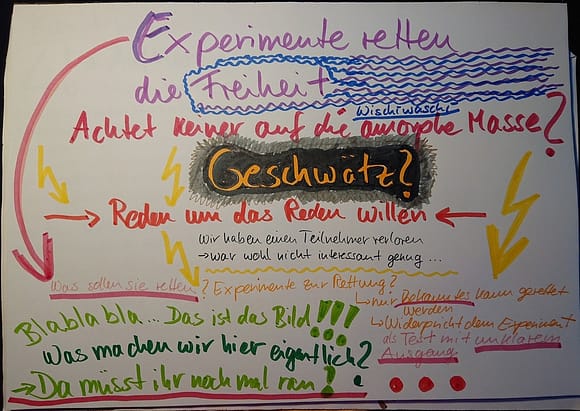 Experimente retten
die Freiheit
Wischiwaschi
Achtet keiner auf die amorphe Masse?
Geschwätz?
→ Reden um das Reden willen ←
Wir haben einen Teilnehmer verloren
→ war wohl nicht interessant genug ...
Was sollen sie retten? Experimente zur Rettung?
↳ nur Bekanntes kann gerettet
werden
↳ Widerspricht dem Experiment
als Test mit unklarem
Ausgang
Blablabla... Das ist das Bild!!!
Was machen wir hier eigentlich?
→ Da müsst ihr noch mal ran! ...